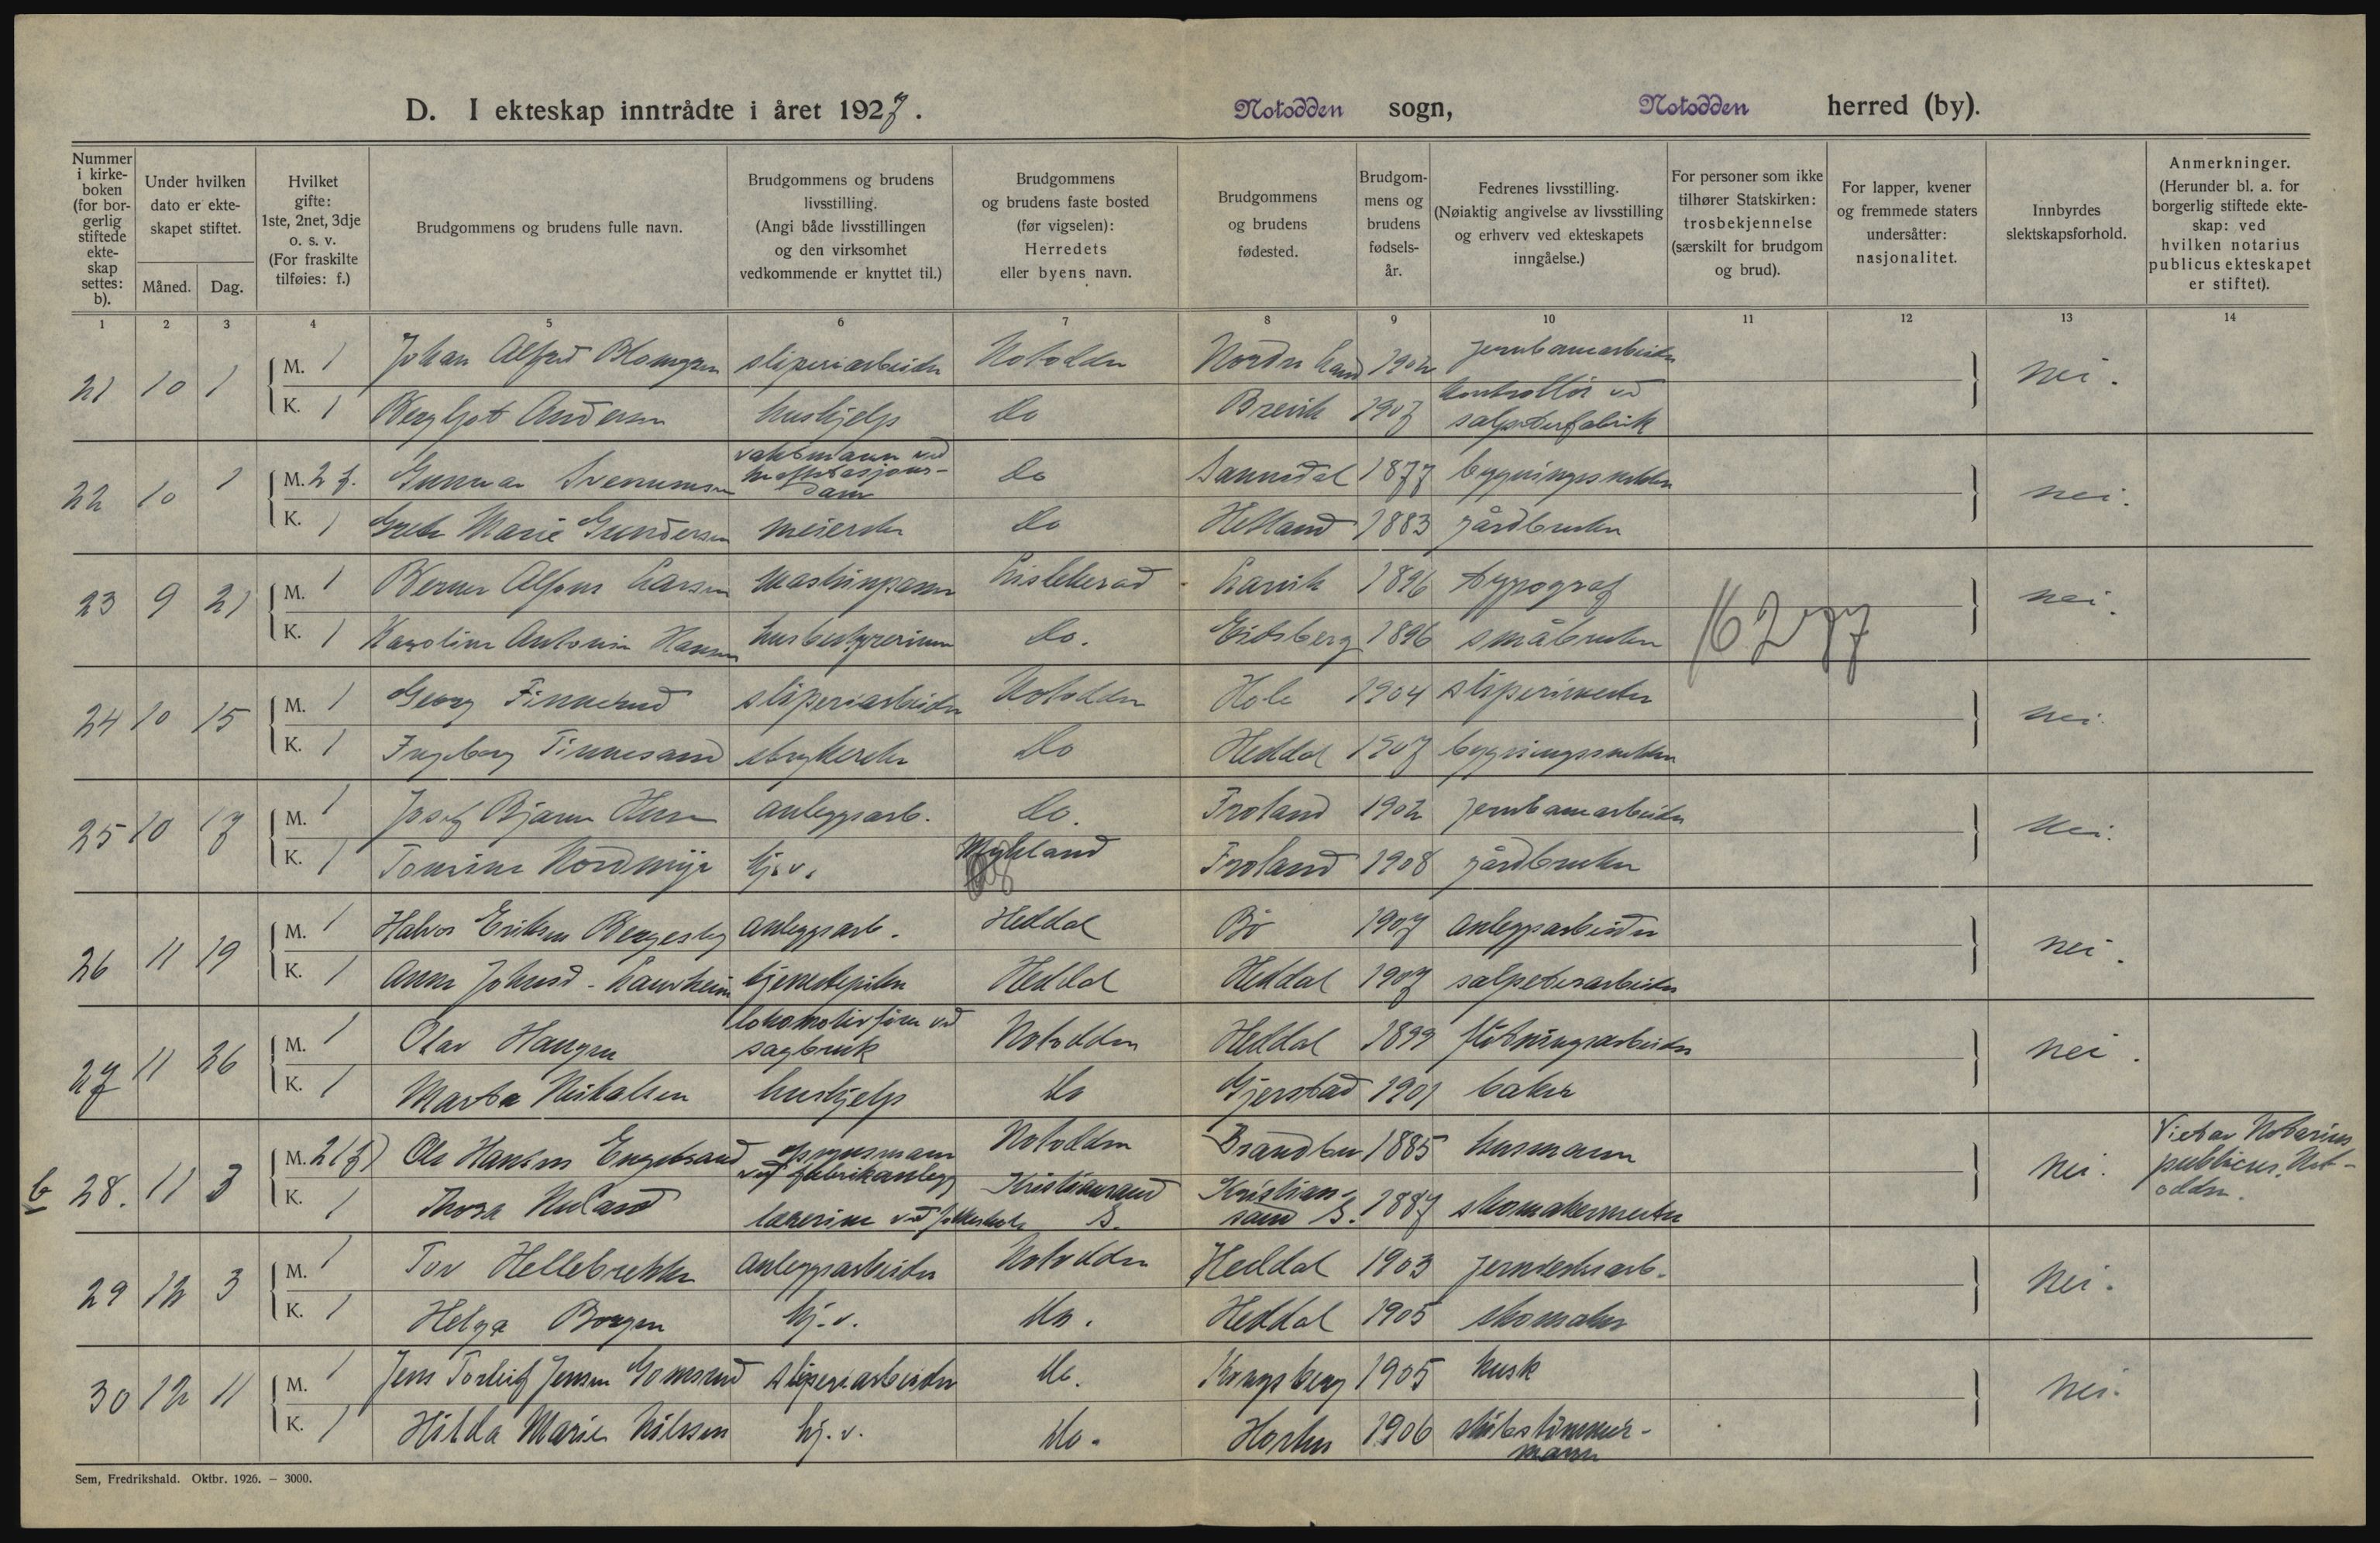 D. I ekteskap inntrådte i året 1927. Notodden sogn, Notodden herred (by).
Nummer i kirkeboken (for borgerlig stiftede ekteskap settes: b).
Under hvilken dato er ekteskapet stiftet.
Måned. Dag.
Hvilket gifte: 1ste, 2net, 3dje o. s. v. (For fraskilte tilføies: f.)
Brudgommens og brudens fulle navn.
Brudgommens og brudens livsstilling. (Angi både livsstillingen og den virksomhet vedkommende er knyttet til.)
Brudgommens og brudens faste bosted (før vigselen): Herredets eller byens navn.
Brudgommens og brudens fødested.
Brudgommens og brudens fødselsår.
Fedrenes livsstilling. (Nøiaktig angivelse av livsstilling og erhverv ved ekteskapets inngåelse.)
For personer som ikke tilhører Statskirken: trosbekjennelse (særskilt for brudgom og brud).
For lapper, kvener og fremmede staters undersåtter: nasjonalitet.
Innbyrdes slektskapsforhold.
Anmerkninger. (Herunder bl. a. for borgerlig stiftede ekteskap: ved hvilken notarius publicus ekteskapet er stiftet).
1 2 3 4 5 6 7 8 9 10 11 12 13 14
21 10 1 M. 1 Johan Alfred Blomgren sliperiarbeider Notodden Nordre Land 1902 jernbanearbeider nei.
K. 1 Bergljot Andersen hushjelp do Brevik 1907 kontrollør ved salpeterfabrik
22 10 1 M. 2 f. Gunnar Svenumsen vaktmann ved dam do Sannidal 1877 bygningssnekker nei.
K. 1 Marie Gundersen meierske do Helland 1883 gårdbruker
23 9 21 M. 1 Werner Alfons Larsen maskinpasser Lisleherad Larvik 1896 typograf nei.
K. 1 Karoline Antonie Hansen husbestyrerinne do. Eidsberg 1896 småbruker
16277
24 10 15 M. 1 Georg Finnerud sliperiarbeider Notodden Hole 1904 sliperimester nei.
K. 1 Ingeborg Tinnesand strykerske do Heddal 1907 bygningssnekker
25 10 17 M. 1 Josef Bjarne Olsen anleggsarb. do. Froland 1902 jernbanearbeider nei.
K. 1 Tomine Nordmyr hj. v. Mykland Froland 1908 gårdbruker
26 11 19 M. 1 Halvor Eriksen Bergesley anleggsarb. Heddal Bø 1907 anleggsarbeider nei.
K. 1 Anne Johnsd. Laurheim tjenestepike Heddal Heddal 1907 salpeterarbeider
27 11 26 M. 1 Olav Haugen lokomotivfører ved sagbruk Notodden Heddal 1899 fløtningsarbeider nei.
K. 1 Marta Nikolsen hushjelp do Gjerstad 1901 baker
b 28. 11 3 M. 2 (f) Ole Hansen Engebraud opsynsmann ved fabrikanlegg Notodden Brandbu 1885 husmann nei. Viet av Notarius publicus, Notodden.
K. 1 Thora Nuland lærerinne ved folkeskole Kristiansand S. Kristiansand S. 1887 skomakermester
29 12 3 M. 1 Tov Hellebrekke anleggsarbeider Notodden Heddal 1903 jernverksarb. nei.
K. 1 Helga Borgen hj. v. do. Heddal 1905 skomaker
30 12 11 M. 1 Jens Torleif Jensen Gomsrud sliperiarbeider do. Kongsberg 1905 kusk nei.
K. 1 Hilda Marie Nilssen hj. v. do. Horten 1906 skibstimmermann
Sem, Fredrikshald. Oktbr. 1926. – 3000.